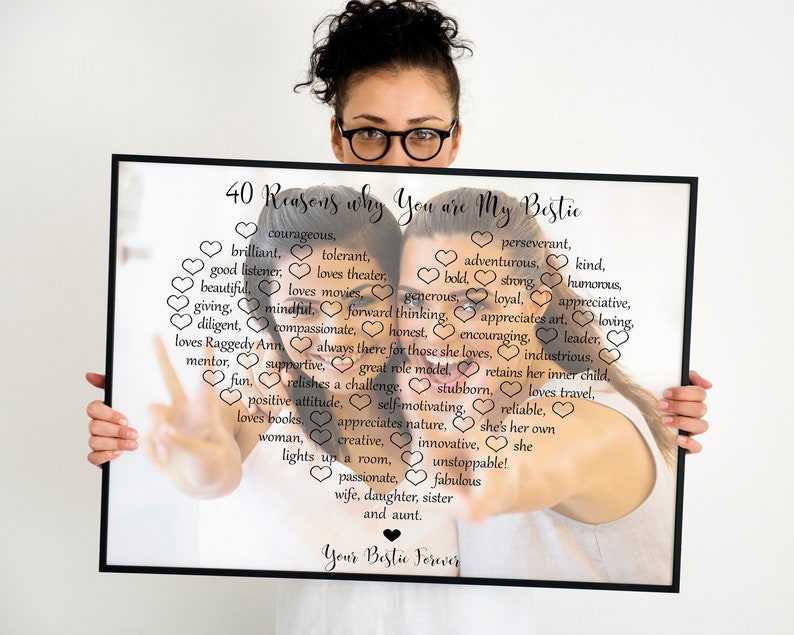 40 Reasons why You are My Bestie
♡ courageous, ♡ perseverant,
♡ brilliant, ♡ tolerant, ♡ adventurous, ♡ kind,
♡ good listener, ♡ loves theater, ♡ bold, ♡ strong, ♡ humorous,
♡ beautiful, ♡ loves movies, ♡ generous, ♡ loyal, ♡ appreciative,
♡ giving, ♡ mindful, ♡ forward thinking, ♡ appreciates art, ♡ loving,
♡ diligent, ♡ compassionate, ♡ honest, ♡ encouraging, ♡ leader, ♡
loves Raggedy Ann, ♡ always there for those she loves, ♡ industrious, ♡
mentor, ♡ supportive, ♡ great role model, ♡ retains her inner child,
♡ fun, ♡ relishes a challenge, ♡ stubborn, ♡ loves travel,
♡ positive attitude, ♡ self-motivating, ♡ reliable, ♡
loves books, ♡ appreciates nature, ♡ she's her own
woman, ♡ creative, ♡ innovative, ♡ she
lights up a room, ♡ unstoppable!
♡ passionate, ♡ fabulous
wife, daughter, sister
and aunt.
♥
Your Bestie Forever